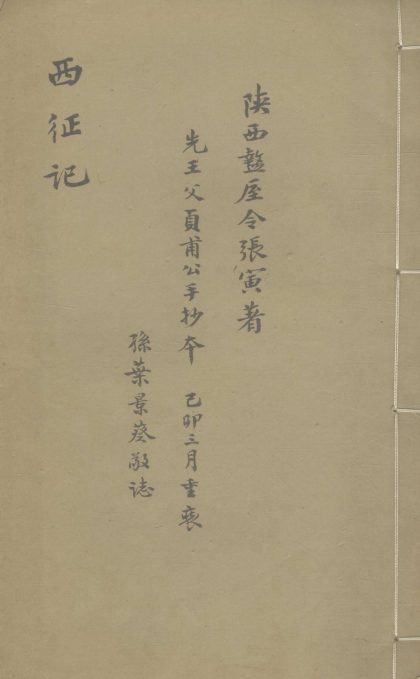 陝西盩厔令張寅著
先王父貞甫公手抄本 己卯三月重裝
孫葉景葵敬誌
西征記